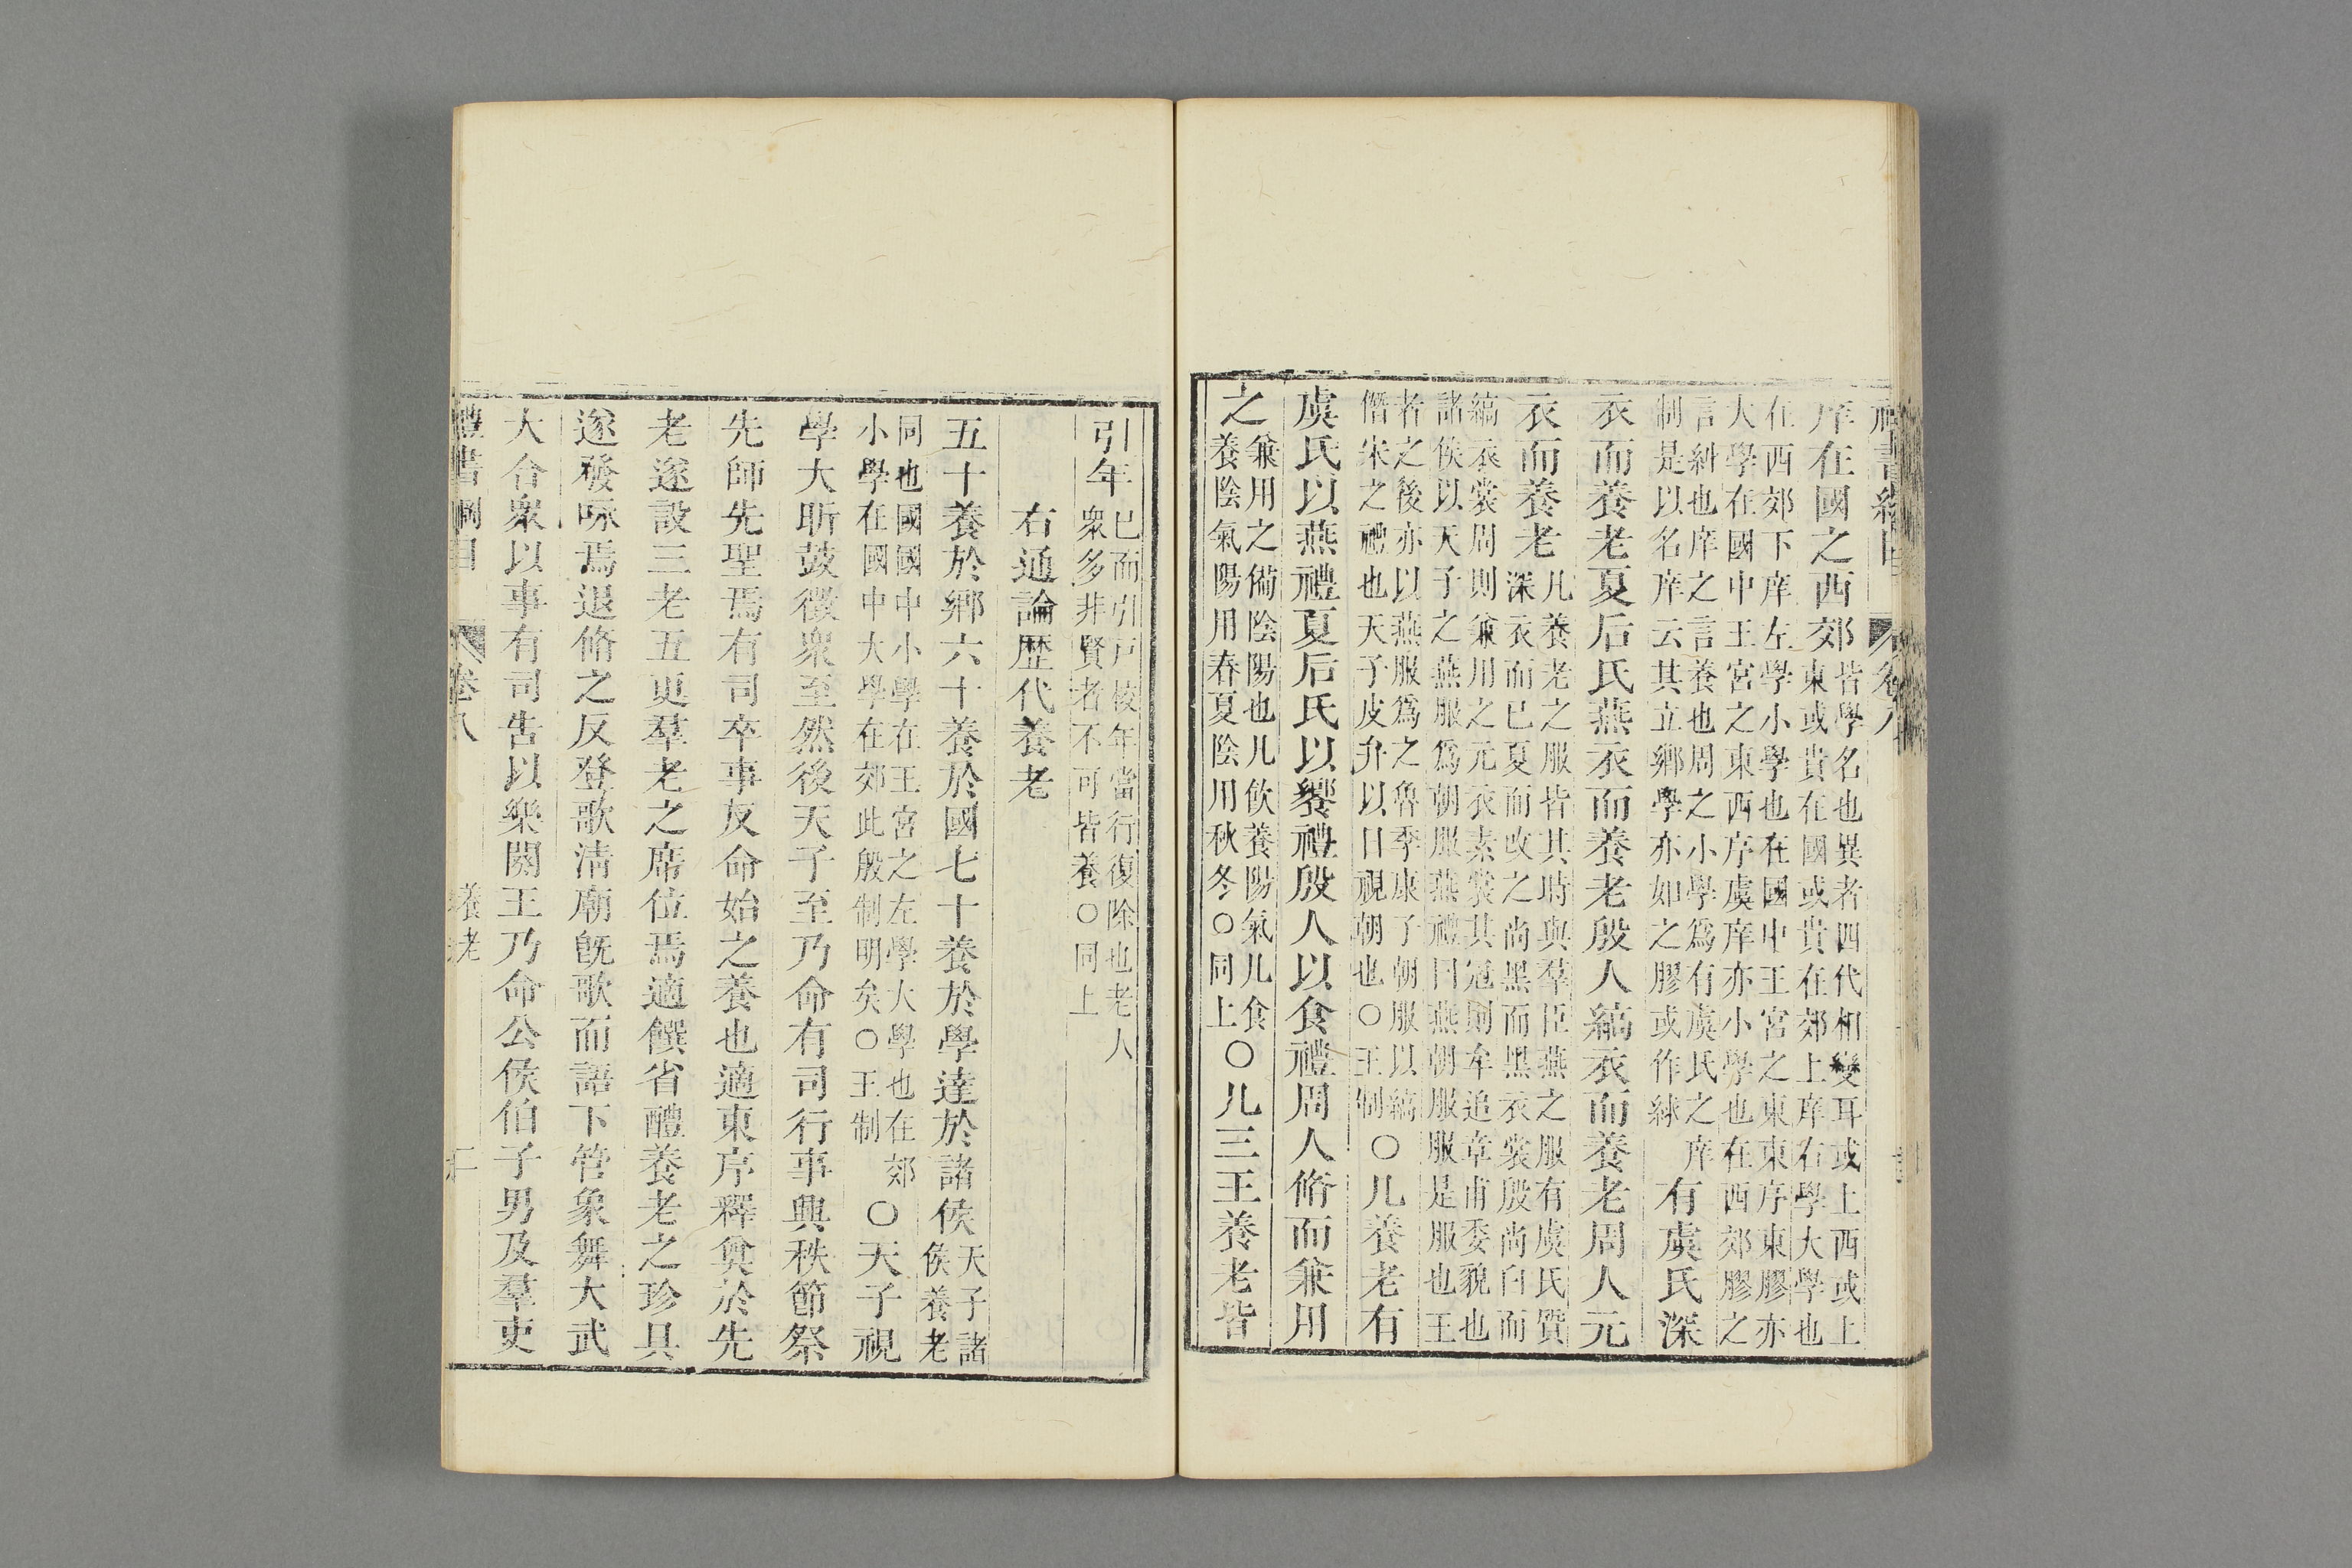 禮書綱目 卷八
庠在國之西郊皆學名也異者四代相變耳或上西或上
東或貴在國或貴在郊上庠右學大學也
在西郊下庠左學小學也在國中王宮之東東序東膠亦
大學在國中王宮之東西序虞庠亦小學也在西郊膠之
言糾也庠之言養也周之小學爲有虞氏之庠
制是以名庠云其立鄉學亦如之膠或作絿
有虞氏深
衣而養老夏后氏燕衣而養老殷人縞衣而養老周人元
衣而養老凡養老之服皆其時與羣臣燕之服有虞氏質
深衣而已夏而改之尚黑而黑衣裳殷尚白而
縞衣裳周則兼用之元衣素裳其冠則牟追章甫委貌也
諸侯以天子之燕服爲朝服燕禮曰燕朝服服是服也王
者之後亦以燕服爲之魯季康子朝服以縞
僭宋之禮也天子皮弁以日視朝也○王制
○凡養老有
虞氏以燕禮夏后氏以饗禮殷人以食禮周人脩而兼用
之兼用之備陰陽也凡飲養陽氣凡食
養陰氣陽用春夏陰用秋冬○同上
○凡三王養老皆
引年已而引戶校年當行復除也老人
衆多非賢者不可皆養○同上
右通論歷代養老
五十養於鄉六十養於國七十養於學達於諸侯天子諸
侯養老
同也國國中小學在王宮之左學大學也在郊
小學在國中大學在郊此殷制明矣○王制
○天子視
學大昕鼓徵衆至然後天子至乃命有司行事興秩節祭
先師先聖焉有司卒事反命始之養也適東序釋奠於先
老遂設三老五更羣老之席位焉適饌省醴養老之珍具
遂發咏焉退脩之反登歌清廟旣歌而語下管象舞大武
大合衆以事有司告以樂闋王乃命公侯伯子男及羣吏
禮書綱目 卷八 養老